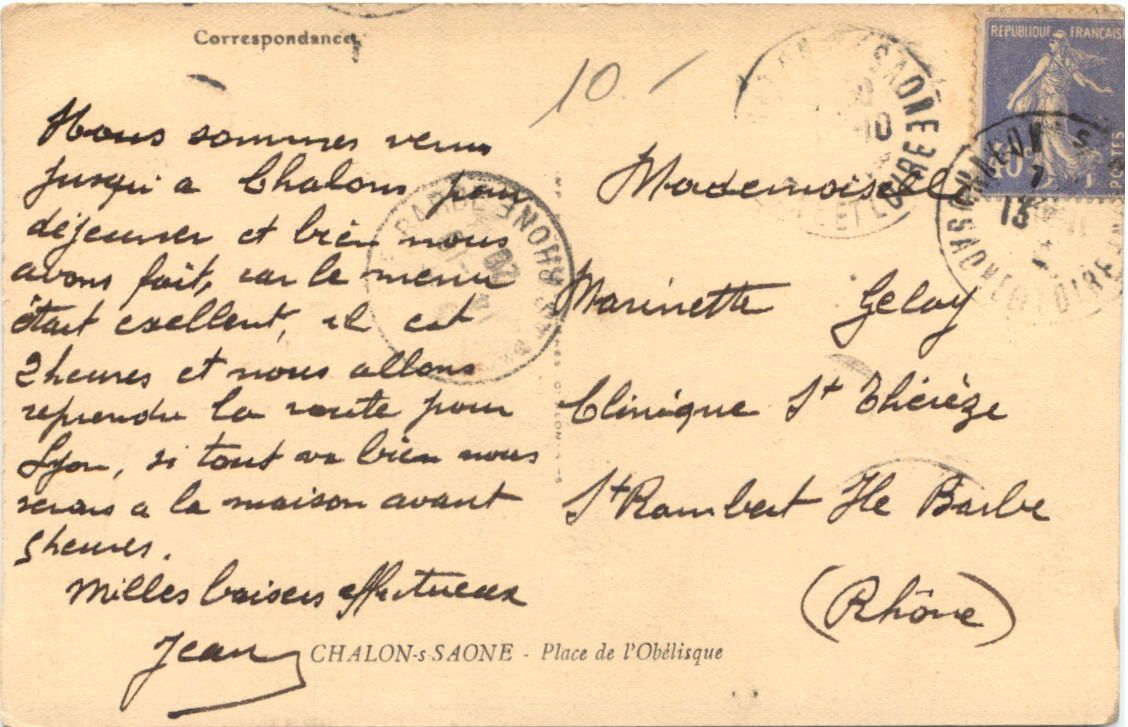 Correspondance
10
Nous sommes venus
jusqu'a Chalons pour
déjeuner et bien nous
avons fait, car le menu
était exellent, il est
2 heures et nous allons
reprendre la route pour
Lyon, si tout va bien nous
serons a la maison avant
5 heures.
Milles baisers affectueux
Jean
CHALON-s-SAONE - Place de l'Obélisque
REPUBLIQUE FRANÇAISE
40c
POSTES
Mademoiselle
Marinette Gelay
Clinique St Thérèze
St Rambert Ile Barbe
(Rhône)
CHALON S SAONE
13
SAONE ET LOIRE
RHONE